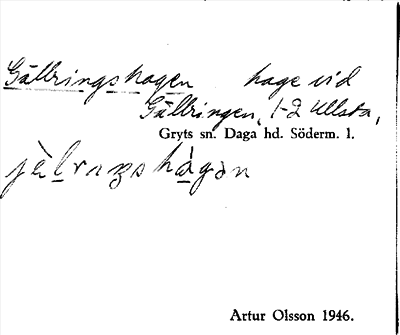 Gällringshagen hage vid
Gällringen, 1-2 Ullsta,
Gryts sn. Daga hd. Söderm. l.
jälrıŋshágən
Artur Olsson 1946.